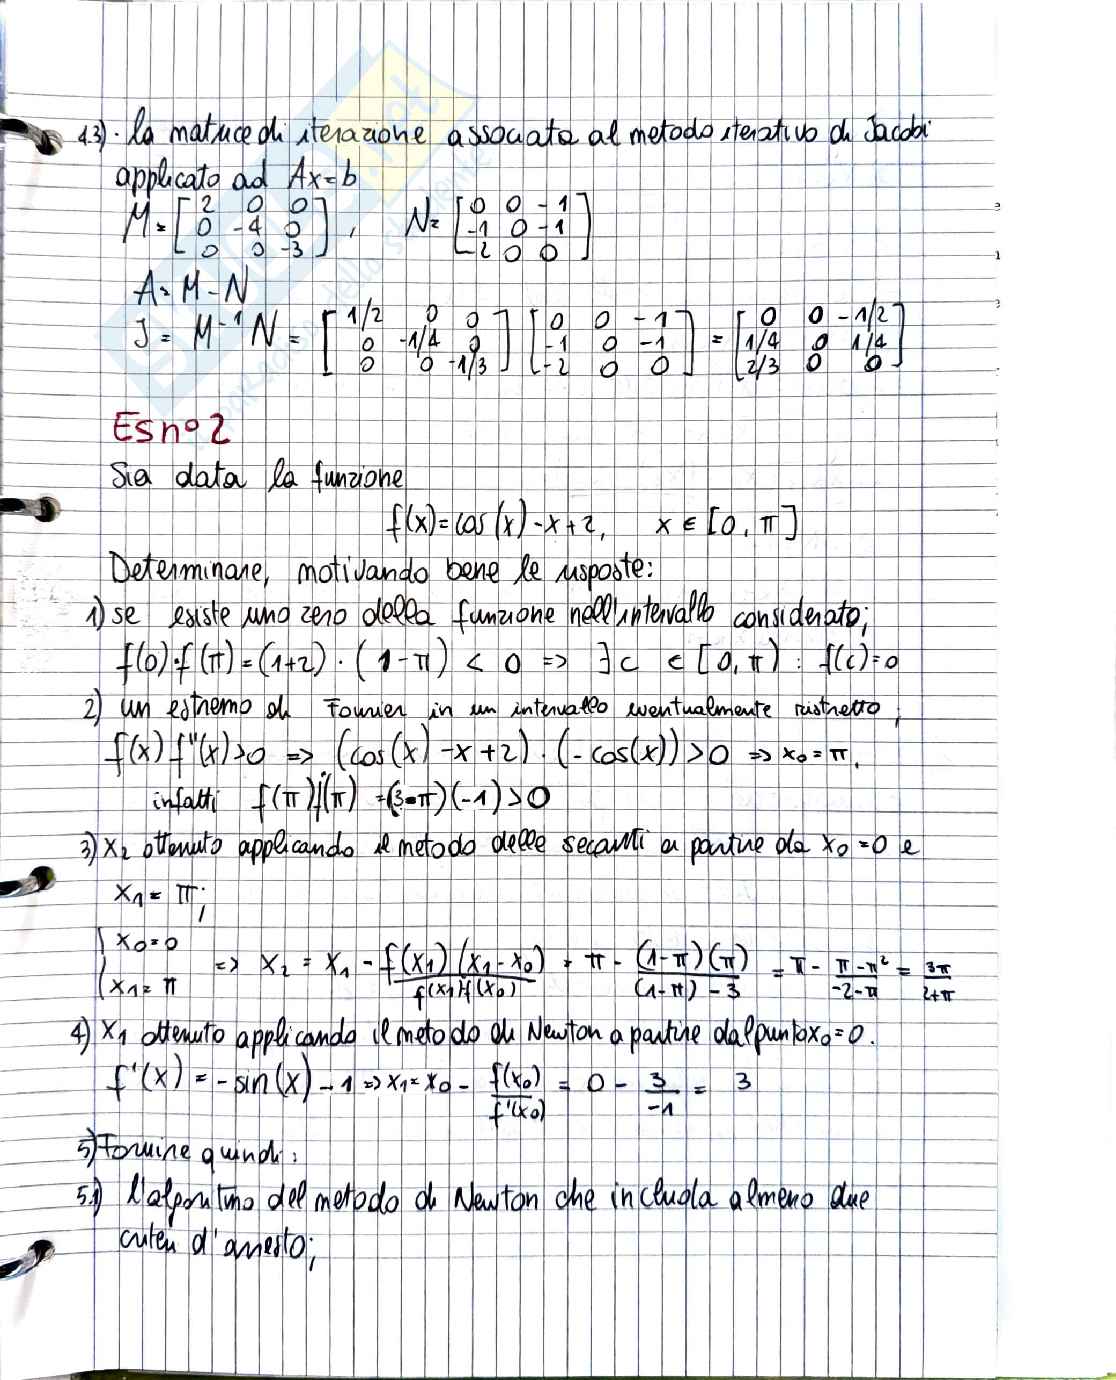 4.3)· la matrice di iterazione associata al metodo iterativo di Jacobi
applicato ad Ax=b
M=[2 0 0; 0 -4 0; 0 0 -3], N=[0 0 -1; -1 0 -1; -2 0 0]
A=M-N
J = M⁻¹N = [1/2 0 0; 0 -1/4 0; 0 0 -1/3] [0 0 -1; -1 0 -1; -2 0 0] = [0 0 -1/2; 1/4 0 1/4; 2/3 0 0]
Es n° 2
Sia data la funzione
f(x)=cos(x)-x+2, x ∈ [0, π]
Determinare, motivando bene le risposte:
1) se esiste uno zero della funzione nell'intervallo considerato;
f(0)·f(π)=(1+2)·(1-π) < 0 => ∃c ∈ [0,π) : f(c)=0
2) un estremo di Fourier in un intervallo eventualmente ristretto;
f(x)f''(x)>0 => (cos(x)-x+2)·(-cos(x))>0 => x₀=π,
infatti f(π)f''(π) =(3-π)(-1)>0
3) x₂ ottenuto applicando il metodo delle secanti a partire da x₀=0 e
x₁= π;
{x₀=0 x₁=π => x₂ = x₁ - f(x₁)(x₁-x₀)/f(x₁)-f(x₀) = π - (1-π)(π)/(1-π)-3 = π - π-π²/-2-π = 3π/2+π
4) x₁ ottenuto applicando il metodo di Newton a partire dal punto x₀=0.
f'(x) = -sin(x) -1 => x₁=x₀ - f(x₀)/f'(x₀) = 0 - 3/-1 = 3
5) Fornire quindi:
5.1) l'algoritmo del metodo di Newton che includa almeno due
criteri d'arresto;